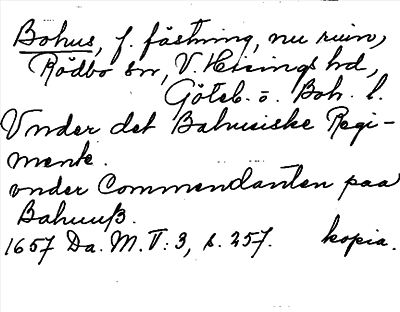 Bohus, f. fästning, nu ruin,
Rödbo sn, V. Hisings hd,
Göteb. o. Boh. l.
Vnder det Bahusiske Regi-
mente.
vnder Commendanten paa
Bahuuß.
1657 Da. M. V: 3, s. 257. kopia.